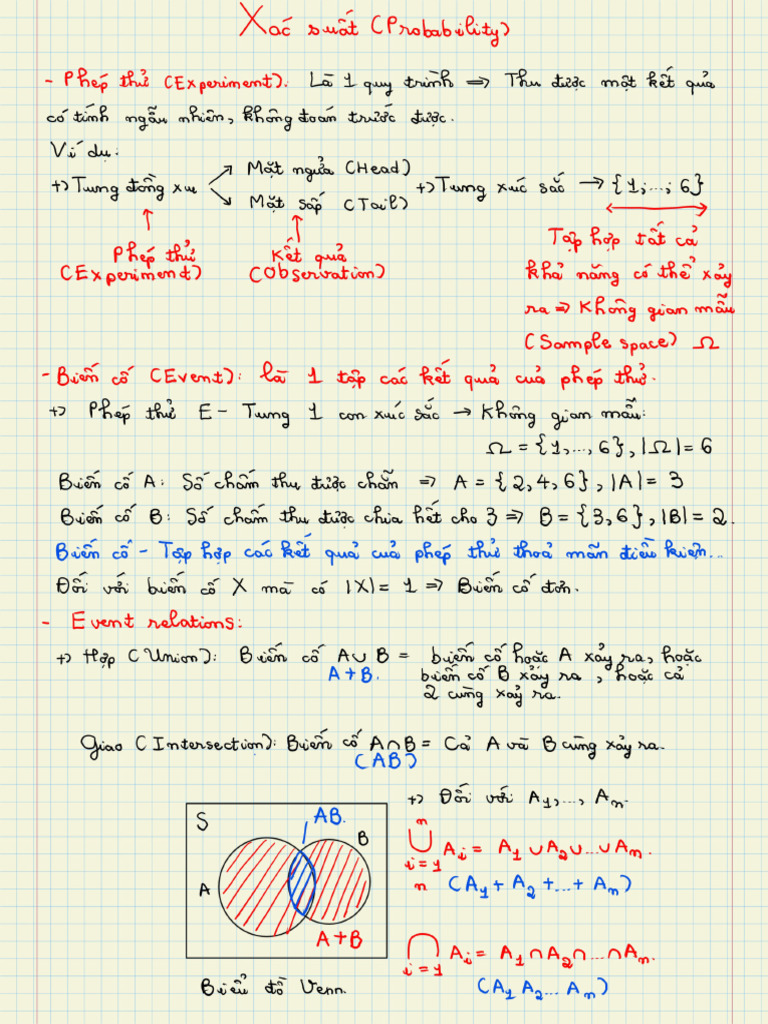 Xác suất (Probability)
- Phép thử (Experiment): Là 1 quy trình => Thu được một kết quả
có tính ngẫu nhiên, không đoán trước được.
Ví dụ:
+) Tung đồng xu
Mặt ngửa (Head)
Mặt sấp (Tail)
+) Tung xúc sắc → {1;...; 6}
Phép thử
(Experiment)
Kết quả
(Observation)
Tập hợp tất cả
khả năng có thể xảy
ra => Không gian mẫu
(Sample space) Ω
- Biến cố (Event): là 1 tập các kết quả của phép thử.
+) Phép thử E - Tung 1 con xúc sắc → Không gian mẫu:
Ω = {1,..., 6}, |Ω| = 6
Biến cố A: Số chấm thu được chẵn => A = {2,4,6}, |A| = 3
Biến cố B: Số chấm thu được chia hết cho 3 => B = {3,6}, |B| = 2.
Biến cố - Tập hợp các kết quả của phép thử thoả mãn điều kiện...
Đối với biến cố X mà có |X| = 1 => Biến cố đơn.
- Event relations:
+) Hợp (Union): Biến cố A∪B = biến cố hoặc A xảy ra, hoặc
A+B. biến cố B xảy ra, hoặc cả
2 cùng xảy ra.
Giao (Intersection): Biến cố A∩B = Cả A và B cùng xảy ra.
(AB)
S
AB.
B
A
A+B
Biểu đồ Venn.
+) Đối với A₁,..., Aₙ.
n
⋃ Aᵢ = A₁ ∪ A₂ ∪ ... ∪ Aₙ.
i=1
(A₁ + A₂ + ... + Aₙ)
n
⋂ Aᵢ = A₁ ∩ A₂ ∩ ... ∩ Aₙ.
i=1
(A₁ A₂ ... Aₙ)